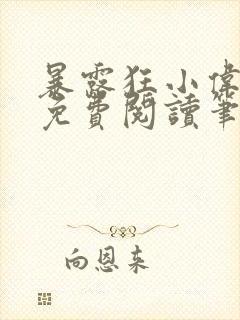 暴露狂小偉
免費閱讀筆
向恩来